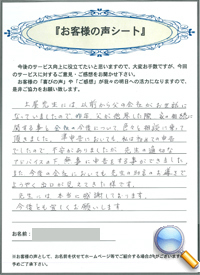 『お客様の声シート』
今後のサービス向上に役立てたいと思いますので、大変お手数ですが、今回
のサービスに対するご意見・ご感想をお聞かせ下さい。
お客様の「喜びの声」や「ご感想」が我々の明日への活力になりますので、
是非ご協力をお願い致します。
土屋先生には以前から父の会社がお世話に
なっていましたので昨年父が他界した際、父の相続に
関する事と会社の今後について色々と相談に乗って
頂きました。
でしたので不安がありましたが先生の適切な
アドバイスの下 無事に申告をする事ができました。
また今後の会社においても先生のお力
ようやく
先生には本当に感謝しております。
今後とも宜しくお願いします
お名前：
※お客様の声として、お名前を伏せてホームページ等でご紹介する場合が
予めご了承下さい。